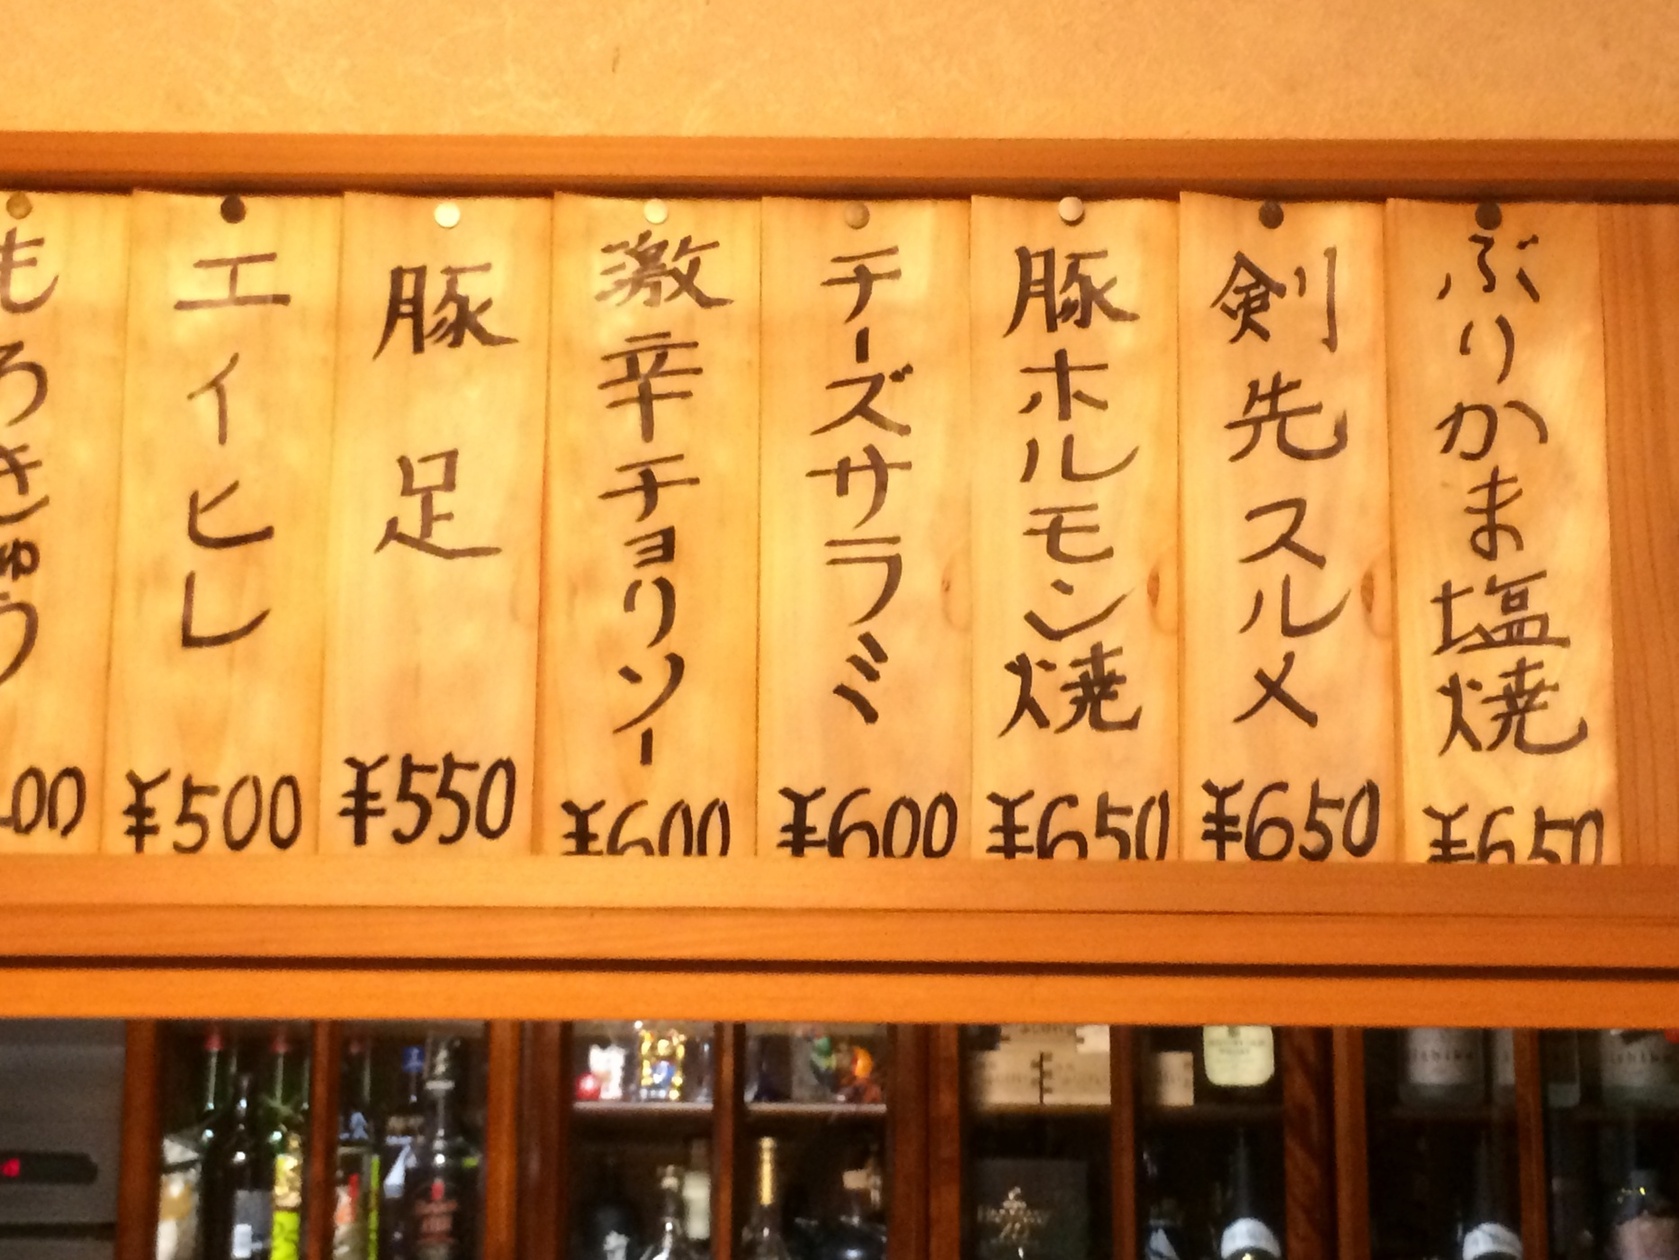 ぶりかま塩焼
¥650
剣先スルメ
¥650
豚ホルモン焼
¥650
チーズサラミ
¥600
激辛チョリソー
¥600
豚足
¥550
エイヒレ
¥500
もろきゅう
00